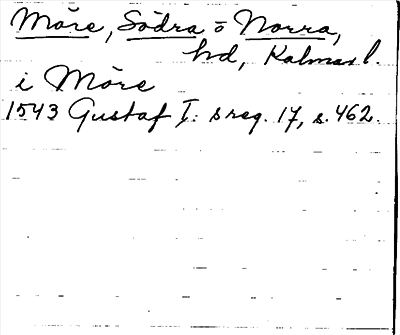 Möre, Södra o Norra,
hd, Kalmar l.
i Möre
1543 Gustaf I: s reg. 17, s. 462.